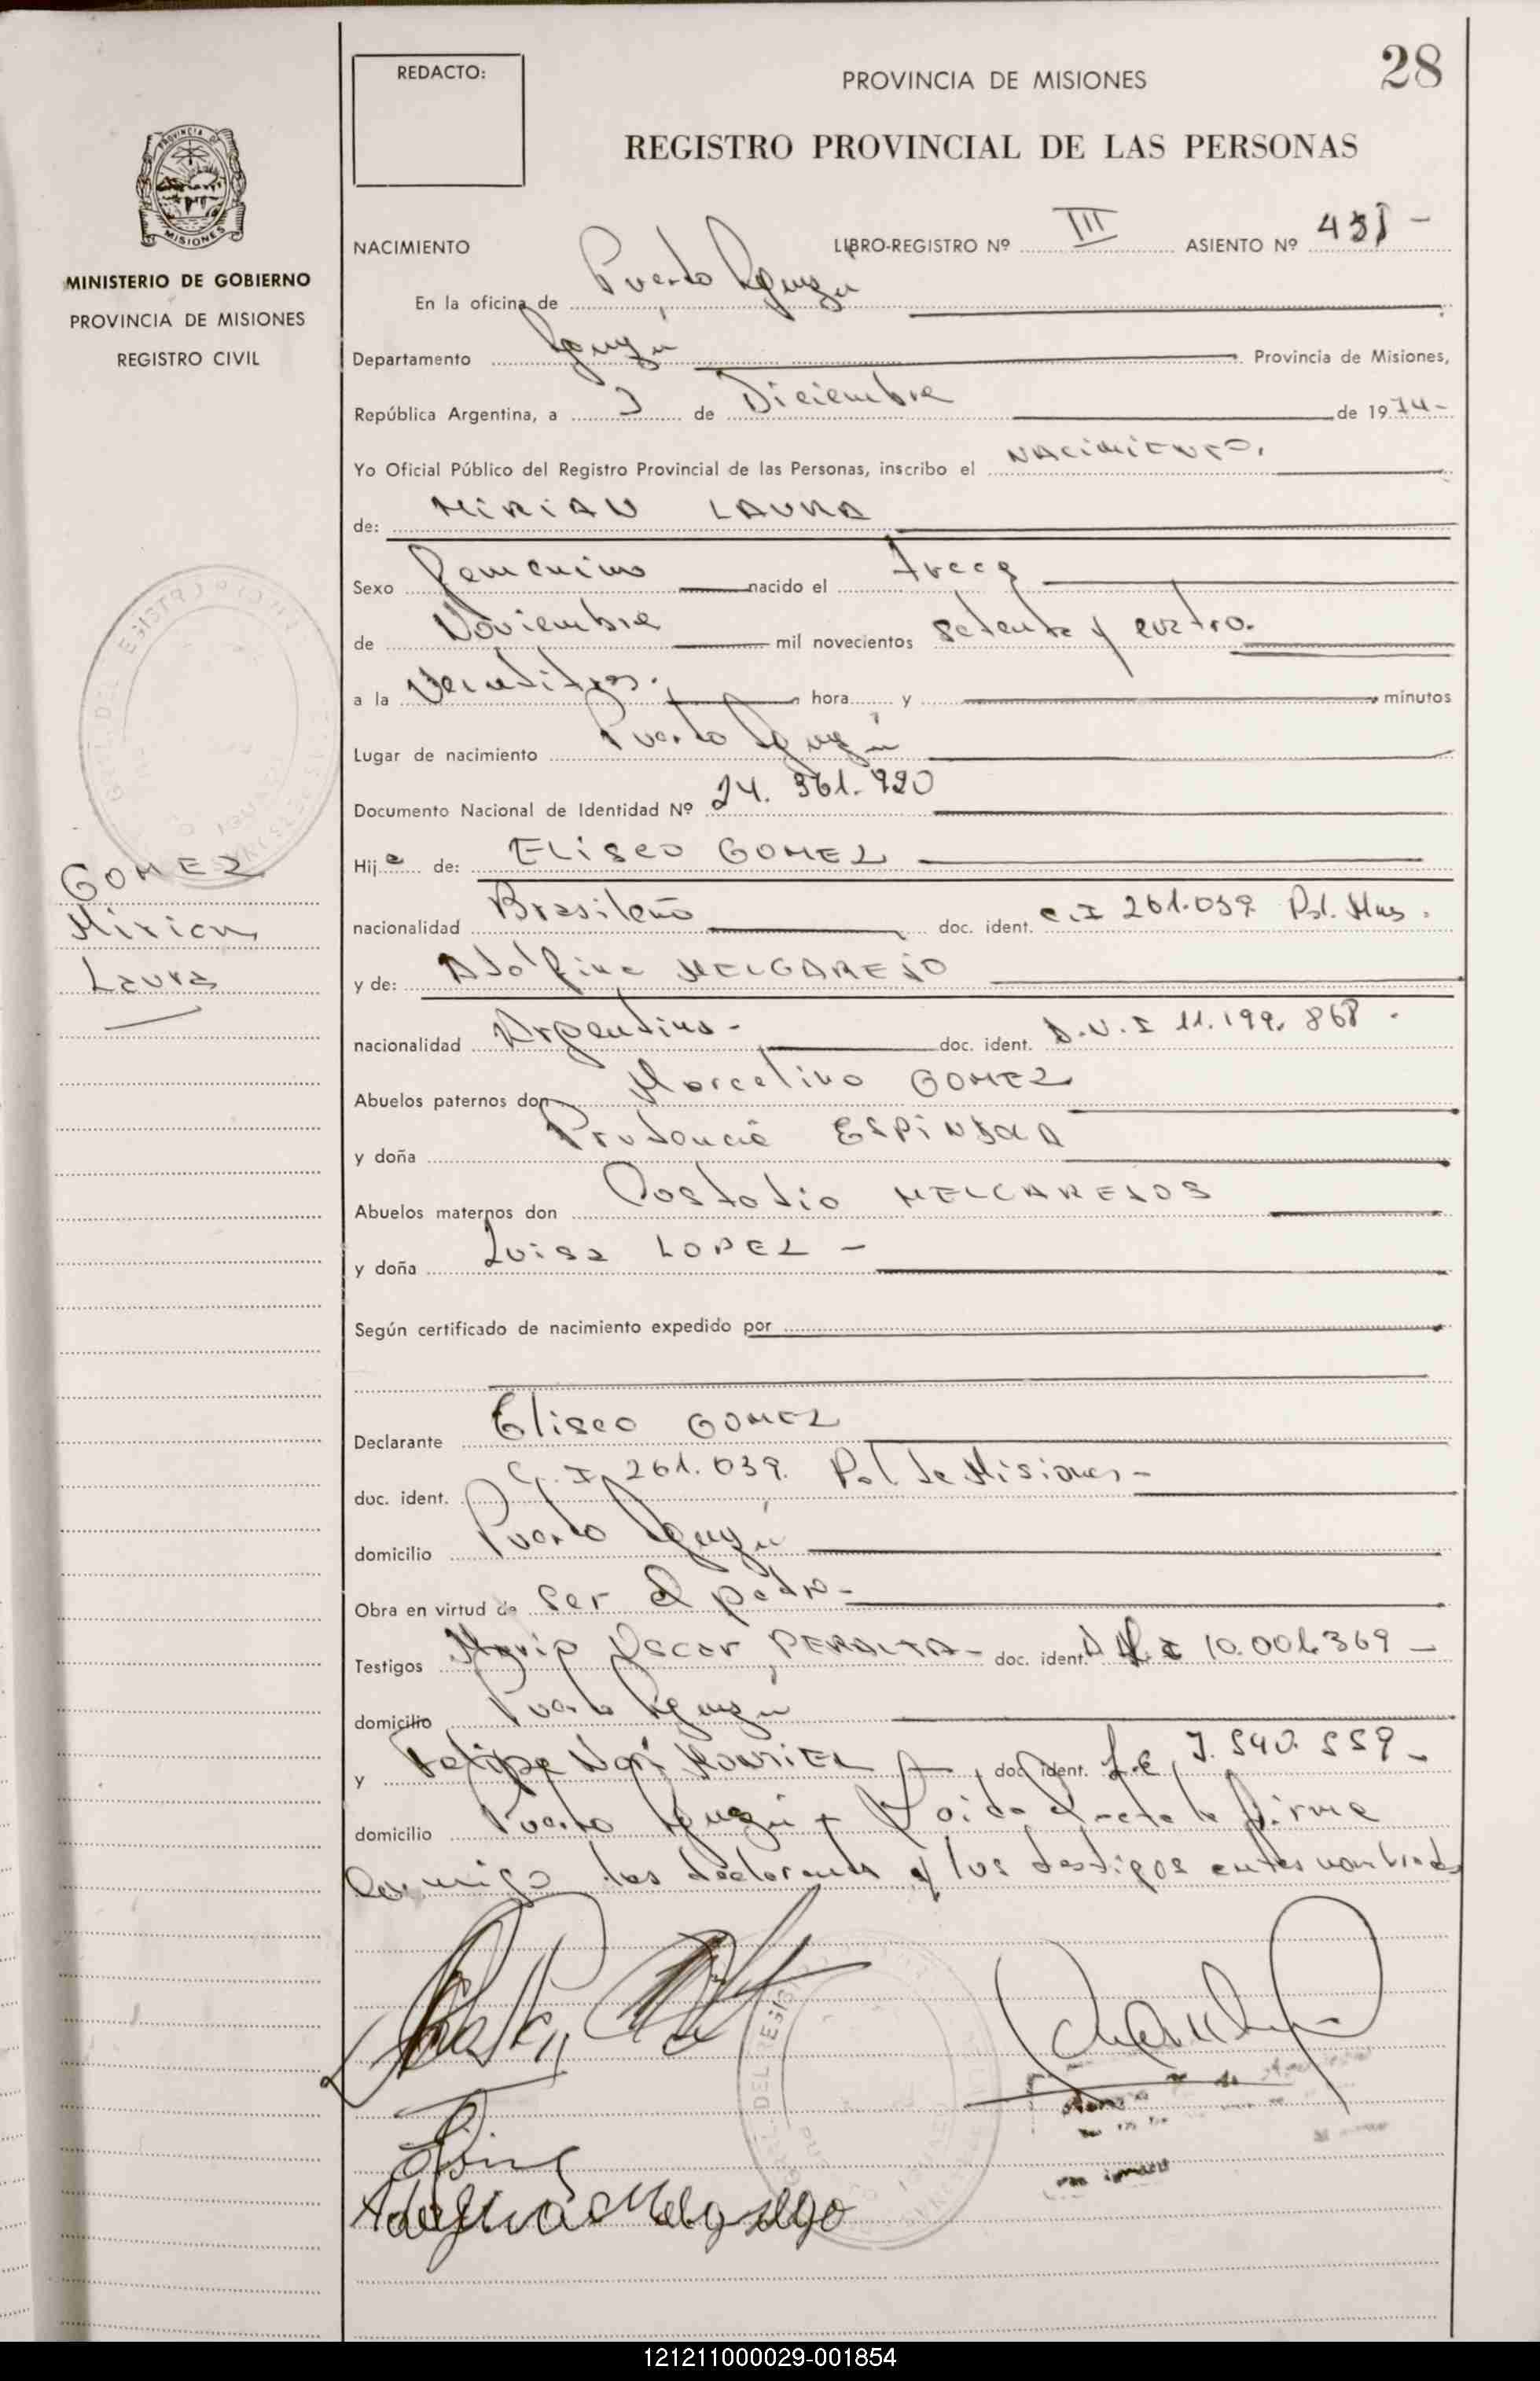 28
REDACTO:
PROVINCIA DE MISIONES
REGISTRO PROVINCIAL DE LAS PERSONAS
NACIMIENTO LIBRO-REGISTRO Nº III ASIENTO Nº
En la oficina de Puerto Iguazú
MINISTERIO DE GOBIERNO
PROVINCIA DE MISIONES
REGISTRO CIVIL
Departamento Iguazú Provincia de Misiones,
República Argentina, a de Diciembre de 1974-
Yo Oficial Público del Registro Provincial de las Personas, inscribo el NACIMIENTO.
de: MIRIAN LAURA
Sexo Femenino nacido el trece
de Noviembre mil novecientos setenta y cuatro.
a la veintitres. hora y minutos
Lugar de nacimiento Puerto Iguazú
Documento Nacional de Identidad Nº 24.361.920
Hija de: ELISEO GOMEZ
GOMEZ
Mirian
Laura
nacionalidad Brasileño doc. ident. C.I 261.039 Pol. Mns.
y de: Adolfina MELGAREJO
nacionalidad Argentina- doc. ident. D.N.I 11.199.868.
Abuelos paternos don Marcelino GOMEZ
y doña Prudencia ESPINDOLA
Abuelos maternos don Custodio MELGAREJOS
y doña Luisa LOPEZ -
Según certificado de nacimiento expedido por
Declarante Eliseo GOMEZ
doc. ident. C.I 261.039. Pol. de Misiones-
domicilio Puerto Iguazú
Obra en virtud de ser el padre-
Testigos Mario Oscar PERALTA- doc. ident. D.N.I 10.001.369-
domicilio Puerto Iguazú
y Felipe doc. ident. L.E 7.540.559-
domicilio Puerto Iguazú Leida el acta la firma
conmigo los declarantes y los testigos antes nombrados
Adolfina Melgarejo
121211000029-001854